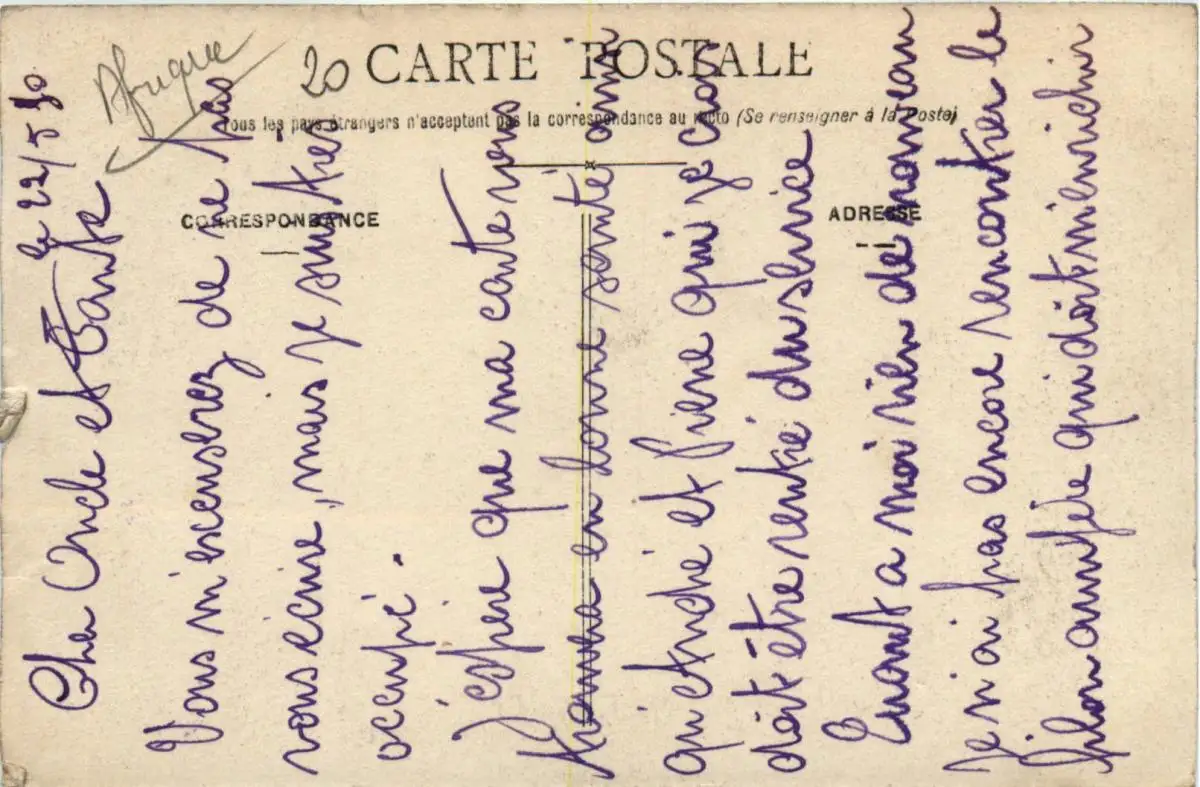 Afrique
20
CARTE POSTALE
Tous les pays étrangers n'acceptent pas la correspondance au recto (Se renseigner à la Poste)
CORRESPONDANCE
ADRESSE
le 22/5 30
Cher Oncle et Tante
Vous m'excuserez de ne pas
vous écrire, mais je suis tres
occupé.
J'espère que ma carte vous
trouvera en bonne santé ainsi
qu'André et Pierre qui je crois
doit être rentré du service
Quant a moi rien de nouveau
je n'ai pas encore rencontrer le
filon aurifère qui doit m'enrichir